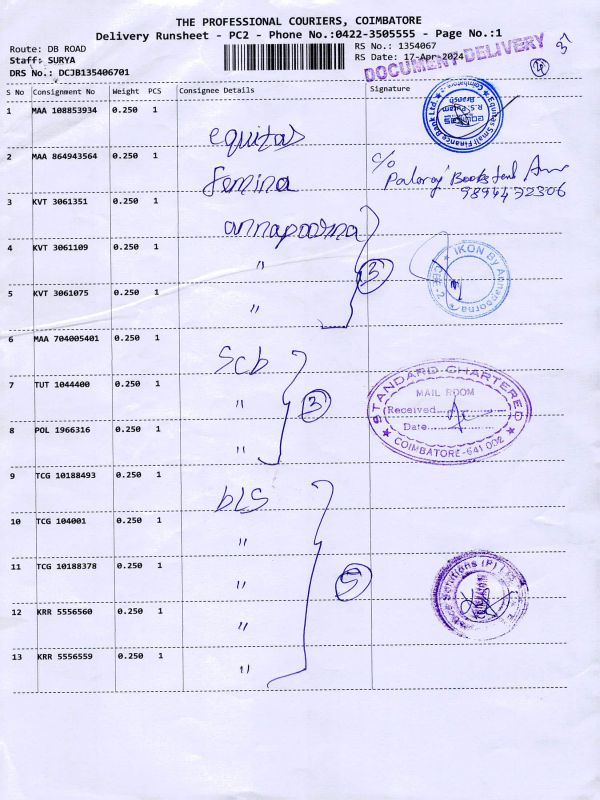 THE PROFESSIONAL COURIERS, COIMBATORE
Delivery Runsheet - PC2 - Phone No.:0422-3505555 - Page No.:1
Route: DB ROAD
RS No.: 1354067
Staff: SURYA
RS Date: 17-Apr-2024
DRS No.: DCJB135406701
DOCUMENT DELIVERY
S No Consignment No Weight PCS Consignee Details Signature
1 MAA 108853934 0.250 1 equitas
Equitas Small Finance Bank Ltd. R.S. Puram Branch Coimbatore
2 MAA 864943564 0.250 1 femina
c/o
9894472306
3 KVT 3061351 0.250 1 annapoorna
4 KVT 3061109 0.250 1 "
3
IKON By Annapoorna
5 KVT 3061075 0.250 1 "
6 MAA 704005401 0.250 1 Scb
7 TUT 1044400 0.250 1 "
3
STANDARD CHARTERED
MAIL ROOM
Received
Date
COIMBATORE-641 002
8 POL 1966316 0.250 1 "
9 TCG 10188493 0.250 1 bLS
10 TCG 104001 0.250 1 "
11 TCG 10188378 0.250 1 "
5
Solutions (P)
12 KRR 5556560 0.250 1 "
13 KRR 5556559 0.250 1 "